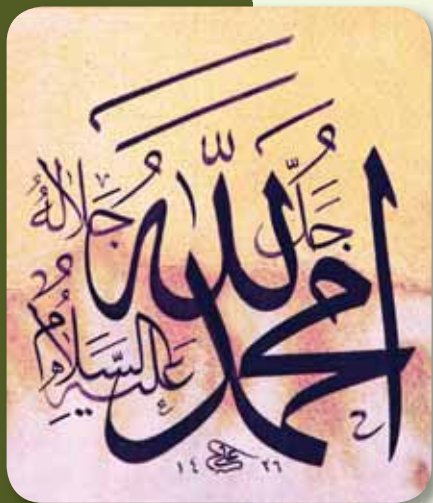 الله جَلَّ جَلَالُهُ
محمد عَلَيْهِ السَّلَامُ
١٤٢٦